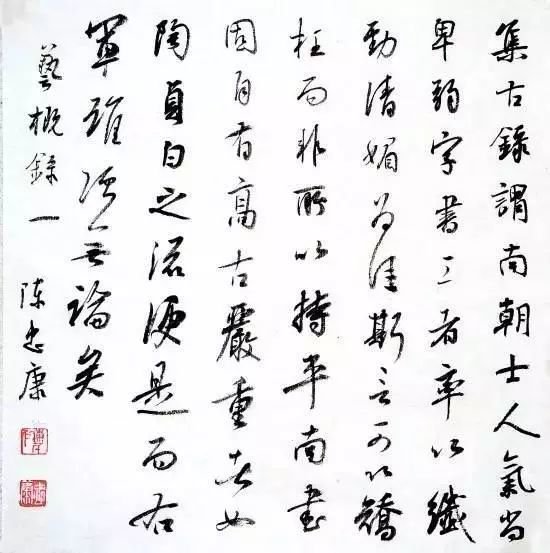 集古錄謂南朝士人氣尚
卑弱字書工者率以纖
勁清媚为佳斯言可以矯
枉而非所以持平南書
固自有高古嚴重者如
陶貞白之流便是而右
軍雄强無論矣
藝概錄一 陈忠康